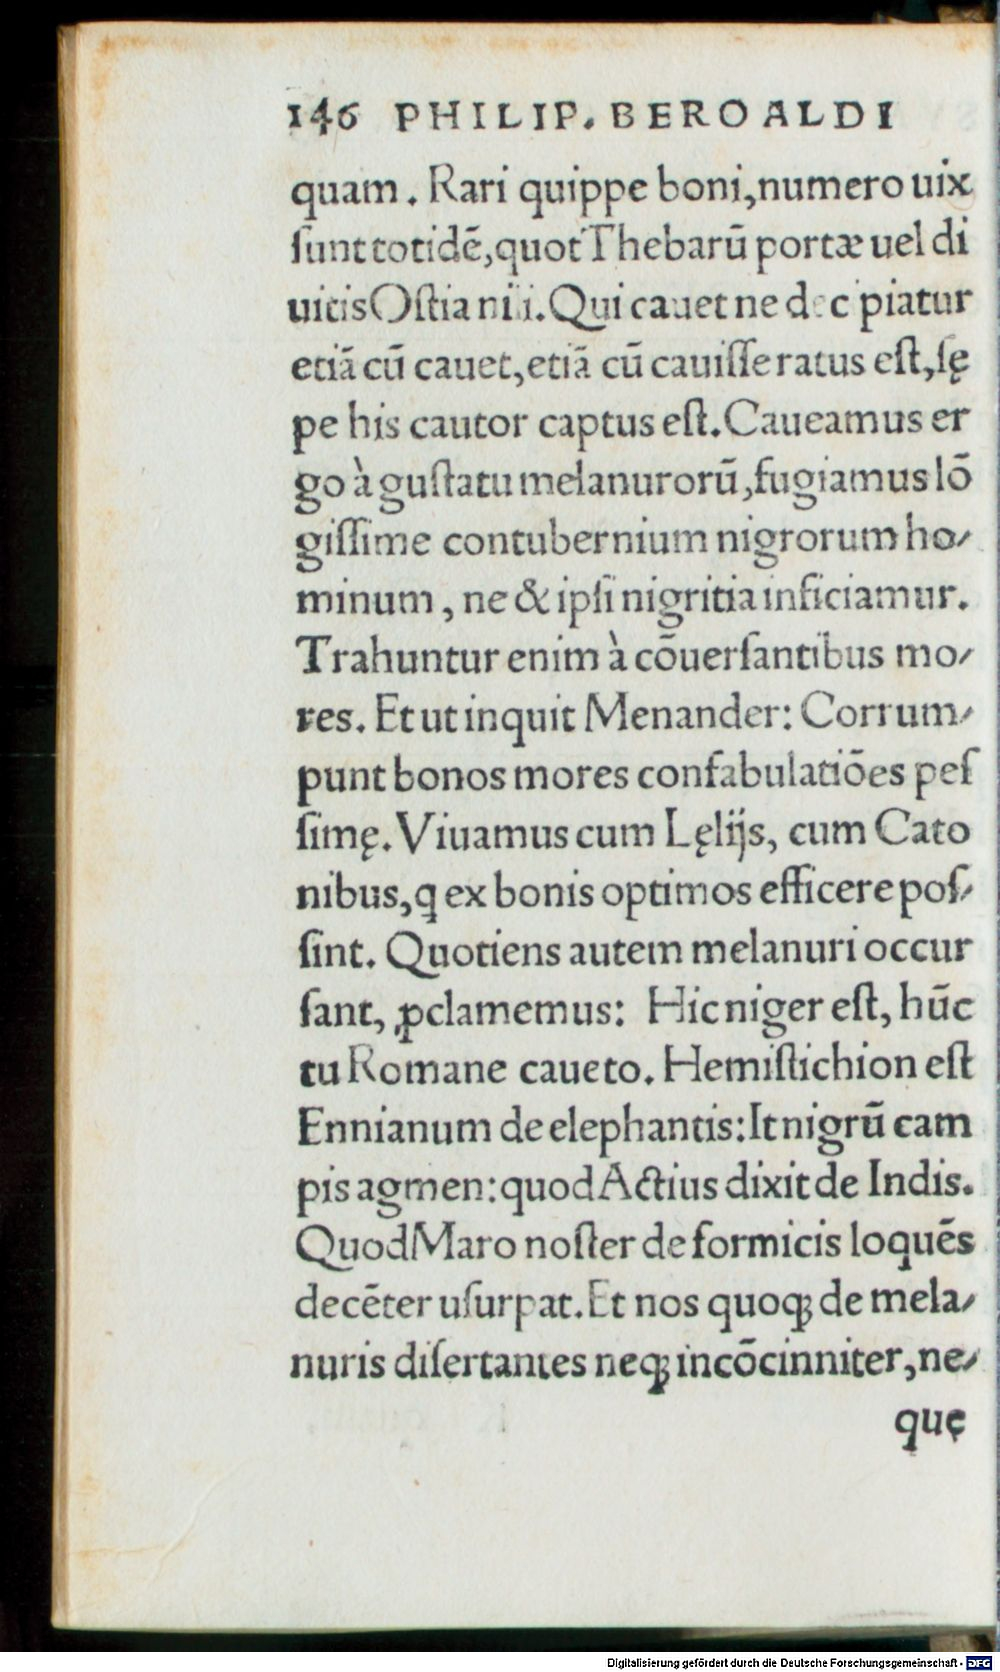 146 PHILIP. BEROALDI
quam. Rari quippe boni, numero uix
ſunt totidē, quot Thebarū portæ uel di
uitis Oſtia nili. Qui cauet ne decipiatur
etiā cū cauet, etiā cū cauiſſe ratus eſt, ſę
pe his cautor captus eſt. Caueamus er
go à guſtatu melanurorū, fugiamus lō
giſſime contubernium nigrorum ho-
minum, ne & ipſi nigritia inficiamur.
Trahuntur enim à cōuerſantibus mo-
res. Et ut inquit Menander: Corrum-
punt bonos mores confabulatiōes peſ
ſimę. Viuamus cum Lęlijs, cum Cato
nibus, q ex bonis optimos efficere poſ-
ſint. Quotiens autem melanuri occur
ſant, ꝓclamemus: Hic niger eſt, hūc
tu Romane caueto. Hemiſtichion eſt
Ennianum de elephantis: It nigrū cam
pis agmen: quod Actius dixit de Indis.
Quod Maro noſter de formicis loquēs
decēter uſurpat. Et nos quoqꝫ de mela-
nuris diſertantes neqꝫ incōcinniter, ne-
quę
Digitalisierung gefördert durch die Deutsche Forschungsgemeinschaft - DFG